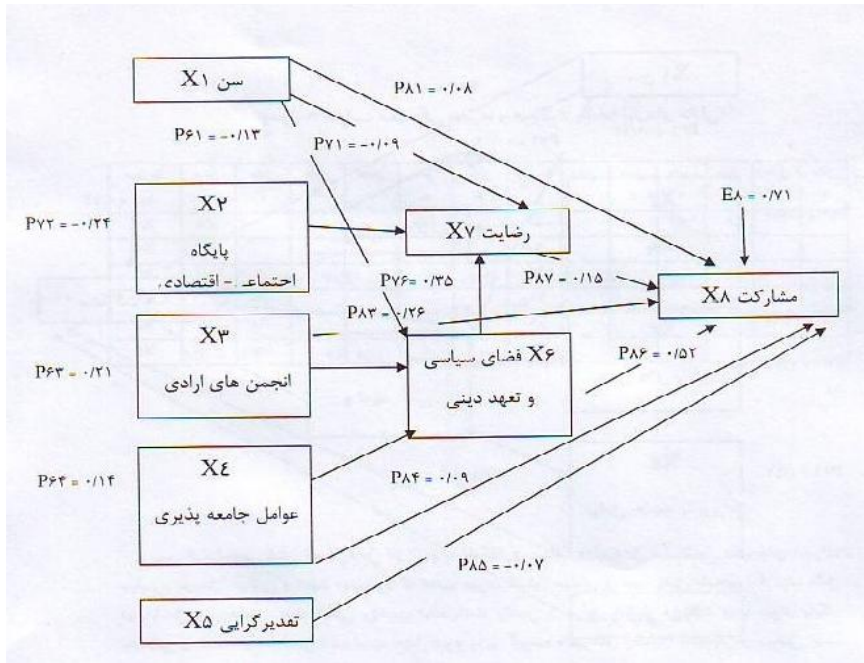 X۱ سن
P۸۱ = ۰/۰۸
P۶۱ = -۰/۱۳
P۷۱ = -۰/۰۹
X۲
پایگاه
اجتماعی - اقتصادی
P۷۲ = -۰/۲۴
X۷ رضایت
E۸ = ۰/۷۱
P۷۶ = ۰/۳۵
P۸۷ = ۰/۱۵
X۸ مشارکت
P۸۳ = ۰/۲۶
X۳
انجمن های ارادی
P۶۳ = ۰/۲۱
X۶ فضای سیاسی
و تعهد دینی
P۸۶ = ۰/۵۲
X٤
عوامل جامعه پذیری
P۶۴ = ۰/۱۴
P۸۴ = ۰/۰۹
P۸۵ = -۰/۰۷
X۵ تقدیرگرایی